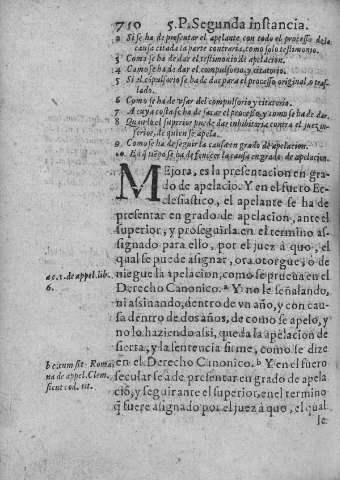 750 5. P. Segunda instancia.
2 Si se ha de presentar el apelante, con todo el processo de la
causa citada la parte contraria, como solo testimonio.
3 Como se ha de dar el testimonio de apelacion.
4 Como se ha de dar el compulsorio, y citatorio.
5 Si el compulsorio se ha de dar para el processo original, o tras-
lado.
6 Como se ha de vsar del compulsorio y citatorio.
7 A cuya costa se ha de sacar el processo, y como se ha de dar.
8 Quando el superior puede dar inhibitoria contra el juez in-
ferior, de quien se apela.
9 Como se ha de seguir la causa en grado de apelacion.
10 En q̃ tiẽpo se ha de fenecer la causa en grado de apelacion.
MEjora, es la presentacion en gra-
do de apelaciō. Y en el fuero Ec-
clesiastico, el apelante se ha de
presentar en grado de apelacion, ante el
superior, y proseguirla en el termino as-
signado para ello, por el juez à quo, el
qual se puede asignar, ora otorgue, ò de
niegue la apelacion, como se prueua en el
Derecho Canonico. ª Y no le señalando,
ni asinando, dentro de vn año, y con cau-
sa dentro de dos años, de como se apelo, y
no lo haziendo assi, queda la apelacion de
sierta, y la sentencia firme, como se dize
en el Derecho Canonico. b Y en el fuero
secular se à de presentar en grado de apela
ciō, y seguir ante el superior, en el termino
q̃ fuere asignado por el juez à quo, el qual
se
a c. 1. de appel. lib.
6.
b c. cum sit Roma
na de appel. Clem.
sicut eod. tit.